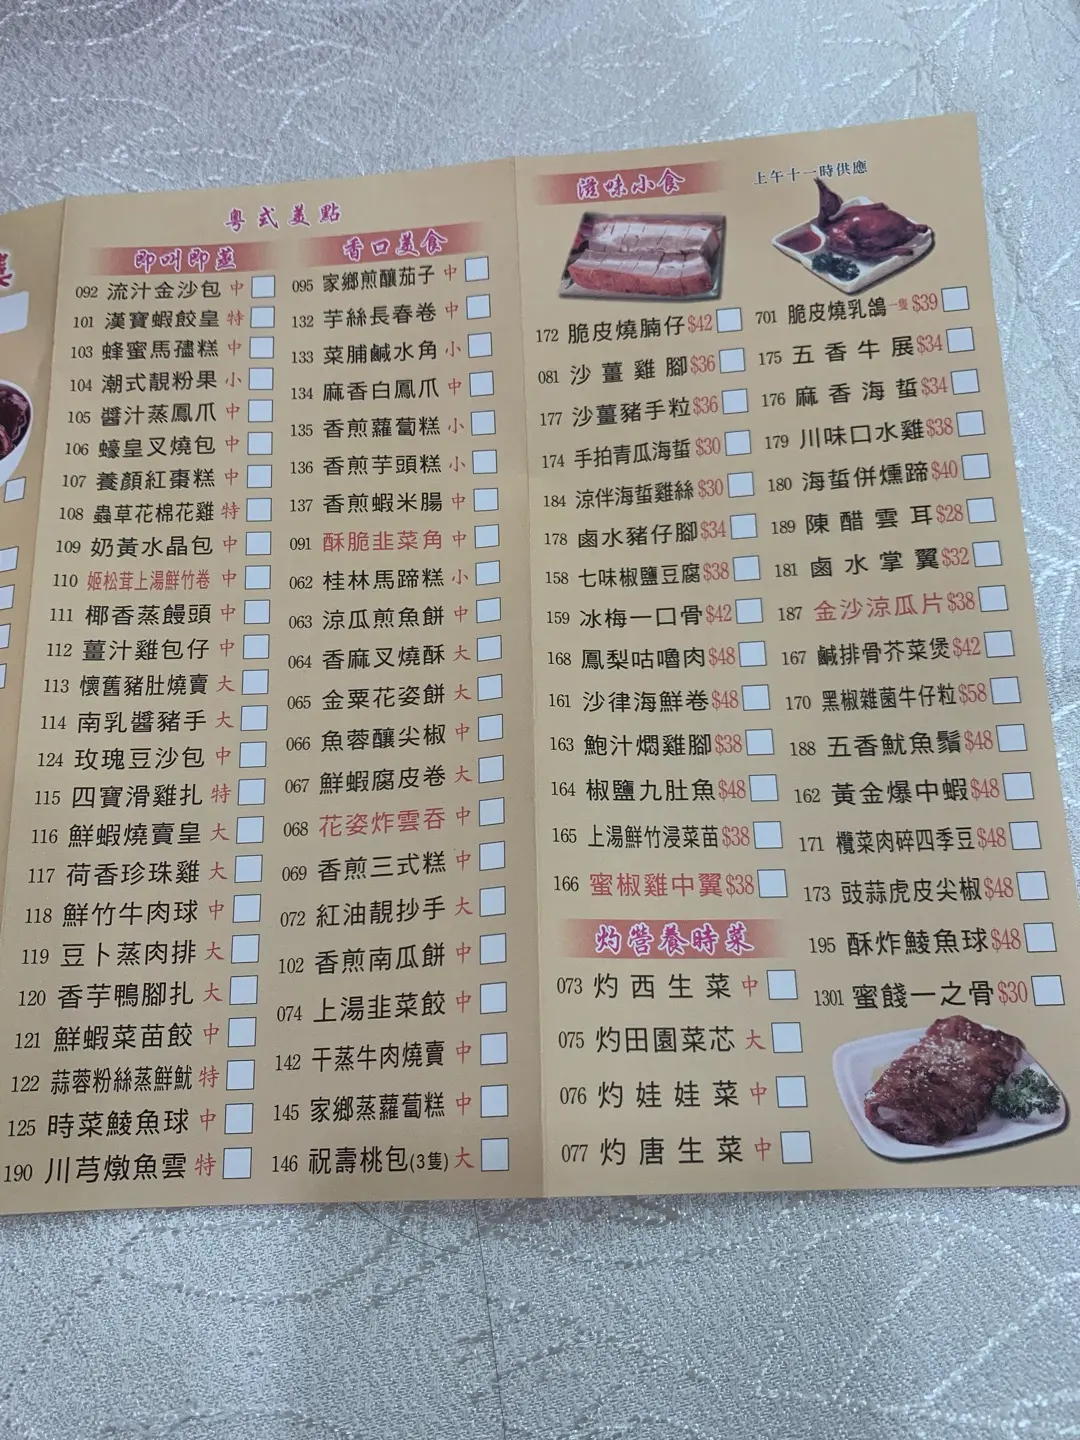 粵式美點
即叫即蒸
092 流汁金沙包 中
101 漢寶蝦餃皇 特
103 蜂蜜馬孻糕 中
104 潮式靚粉果 小
105 醬汁蒸鳳爪 中
106 蠔皇叉燒包 中
107 養顏紅棗糕 中
108 蟲草花棉花雞 特
109 奶黃水晶包 中
110 姬松茸上湯鮮竹卷 中
111 椰香蒸饅頭 中
112 薑汁雞包仔 中
113 懷舊豬肚燒賣 大
114 南乳醬豬手 大
124 玫瑰豆沙包 中
115 四寶滑雞扎 特
116 鮮蝦燒賣皇 大
117 荷香珍珠雞 大
118 鮮竹牛肉球 中
119 豆卜蒸肉排 大
120 香芋鴨腳扎 大
121 鮮蝦菜苗餃 中
122 蒜蓉粉絲蒸鮮魷 特
125 時菜鯪魚球 中
190 川芎燉魚雲 特
香口美食
095 家鄉煎釀茄子 中
132 芋絲長春卷 中
133 菜脯鹹水角 小
134 麻香白鳳爪 中
135 香煎蘿蔔糕 小
136 香煎芋頭糕 小
137 香煎蝦米腸 中
091 酥脆韭菜角 中
062 桂林馬蹄糕 小
063 涼瓜煎魚餅 中
064 香麻叉燒酥 大
065 金粟花姿餅 大
066 魚蓉釀尖椒 中
067 鮮蝦腐皮卷 大
068 花姿炸雲吞 中
069 香煎三式糕 中
072 紅油靚抄手 大
102 香煎南瓜餅 中
074 上湯韭菜餃 中
142 干蒸牛肉燒賣 中
145 家鄉蒸蘿蔔糕 中
146 祝壽桃包(3隻) 大
滋味小食
上午十一時供應
172 脆皮燒腩仔 $42
081 沙薑雞腳 $36
177 沙薑豬手粒 $36
174 手拍青瓜海蜇 $30
184 涼伴海蜇雞絲 $30
178 鹵水豬仔腳 $34
158 七味椒鹽豆腐 $38
159 冰梅一口骨 $42
168 鳳梨咕嚕肉 $48
161 沙律海鮮卷 $48
163 鮑汁燜雞腳 $38
164 椒鹽九肚魚 $48
165 上湯鮮竹浸菜苗 $38
166 蜜椒雞中翼 $38
701 脆皮燒乳鴿 一隻 $39
175 五香牛展 $34
176 麻香海蜇 $34
179 川味口水雞 $38
180 海蜇併燻蹄 $40
189 陳醋雲耳 $28
181 鹵水掌翼 $32
187 金沙涼瓜片 $38
167 鹹排骨芥菜煲 $42
170 黑椒雜菌牛仔粒 $58
188 五香魷魚鬚 $48
162 黃金爆中蝦 $48
171 欖菜肉碎四季豆 $48
173 豉蒜虎皮尖椒 $48
195 酥炸鯪魚球 $48
1301 蜜餞一之骨 $30
灼營養時菜
073 灼西生菜 中
075 灼田園菜芯 大
076 灼娃娃菜 中
077 灼唐生菜 中